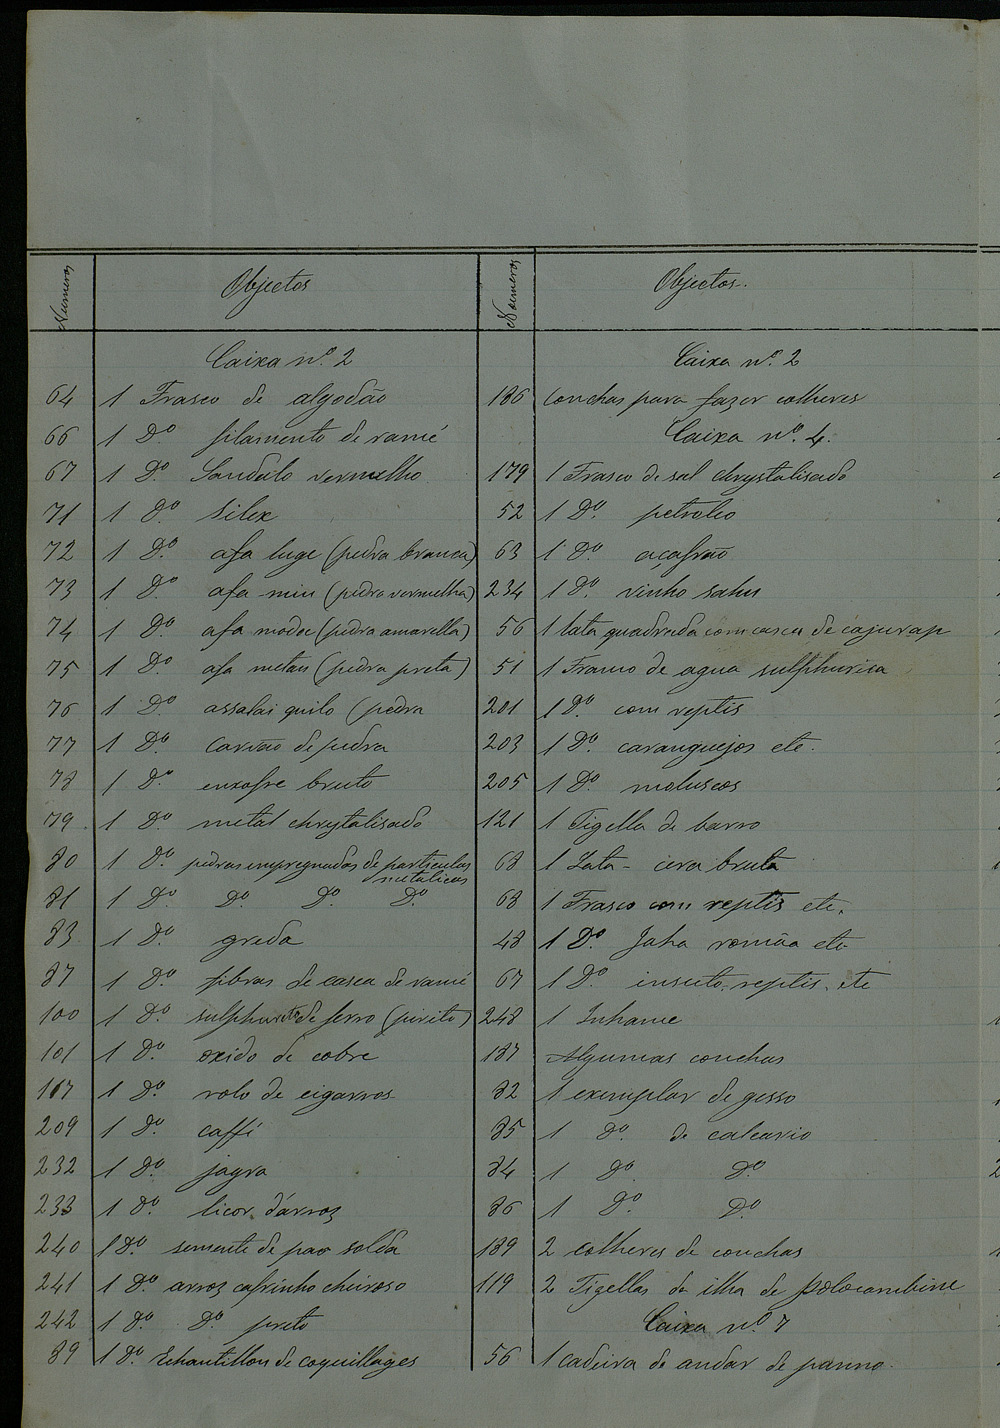 Numeros
Objectos
Caixa nº 2
64 1 Frasco de algodão
66 1 Dº filamento de ramé
67 1 Dº Sandalo vermelho
71 1 Dº Silex
72 1 Dº afa luge (pedra branca)
73 1 Dº afa miu (pedra vermelha)
74 1 Dº afa modoc (pedra amarella)
75 1 Dº afa metau (pedra preta)
76 1 Dº assalai quilo (pedra
77 1 Dº Carvão de pedra
78 1 Dº enxofre bruto
79 1 Dº metal chrystalisado
80 1 Dº pedras impregnadas de particulas
metalicas
81 1 Dº Dº Dº Dº
83 1 Dº greda
87 1 Dº fibras de casca de ramé
100 1 Dº sulphureto de ferro (pirite)
101 1 Dº oxido de cobre
167 1 Dº rolo de cigarros
209 1 Dº caffé
232 1 Dº jagra
233 1 Dº licor d'arroz
240 1 Dº semente de pao solda
241 1 Dº arroz cafrinho cheiroso
242 1 Dº Dº preto
89 1 Dº Echantillon de coquillages
Numeros
Objectos
Caixa nº 2
186 Conchas para fazer colheres
Caixa nº 4
179 1 Frasco de sal chrystalisado
52 1 Dº petroleo
63 1 Dº açafrão
234 1 Dº vinho
56 1 lata quadrada com casca de
51 1 Frasco de agua sulphurica
201 1 Dº com reptis
203 1 Dº caranguejos etc.
205 1 Dº moluscos
121 1 Tigella de barro
68 1 Lata - cera bruta
68 1 Frasco com reptis etc.
48 1 Dº etc
67 1 Dº insecto, reptis, etc
248 1 Inhame
187 Algumas conchas
82 1 exemplar de gesso
85 1 Dº de calcario
84 1 Dº Dº
86 1 Dº Dº
189 2 colheres de conchas
119 2 Tigellas da ilha de Polocambine
Caixa nº 7
56 1 cadeira de andar de panno